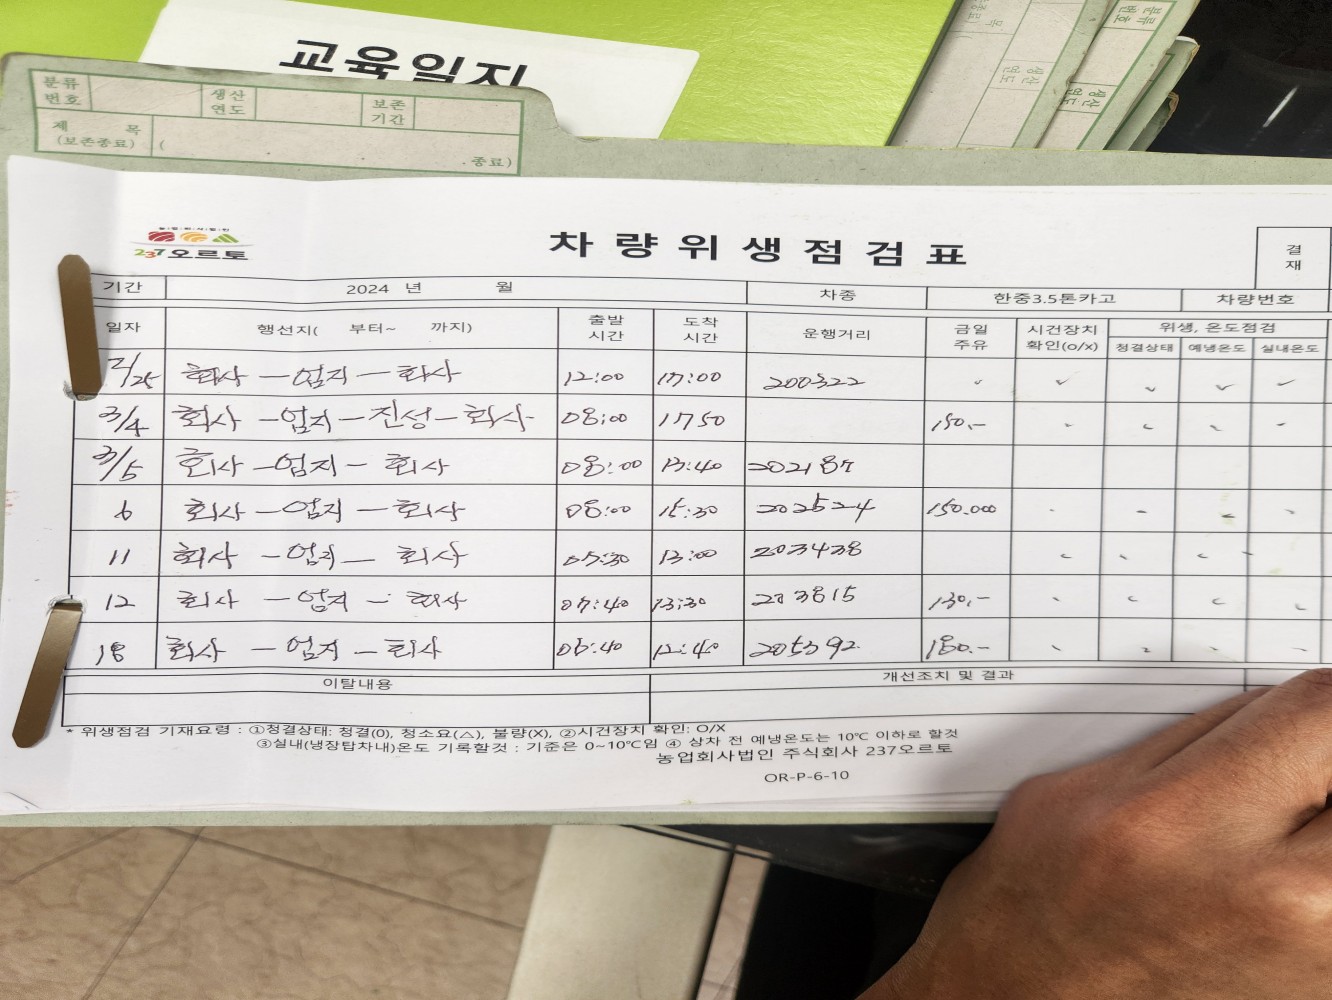 교육일지
분류번호 생산연도 보존기간
제 목 (보존종료) ( . . 종료)
농업회사법인
237오르토
차량위생점검표
결재
기간 2024 년 월 차종 한중3.5톤카고 차량번호
일자 행선지( 부터~ 까지) 출발시간 도착시간 운행거리 금일주유 시건장치확인(o/x) 위생, 온도점검
청결상태 예냉온도 실내온도
2/25 회사 - 엄지 - 회사 12:00 17:00 200322
3/4 회사 - 엄지 - 진성 - 회사 08:00 17 50 150.-
3/5 회사 - 엄지 - 회사 08:00 13:40 202187
6 회사 - 엄지 - 회사 08:00 15:30 202524 150.000
11 회사 - 엄지 - 회사 05:30 13:00 203438
12 회사 - 엄지 - 회사 07:40 13:30 203815 130.-
18 회사 - 엄지 - 회사 06:40 12:40 205392 180.-
이탈내용 개선조치 및 결과
* 위생점검 기재요령 : ①청결상태: 청결(0), 청소요(△), 불량(X), ②시건장치 확인: O/X
③실내(냉장탑차내)온도 기록할것 : 기준은 0~10℃임 ④ 상차 전 예냉온도는 10℃ 이하로 할것
농업회사법인 주식회사 237오르토
OR-P-6-10